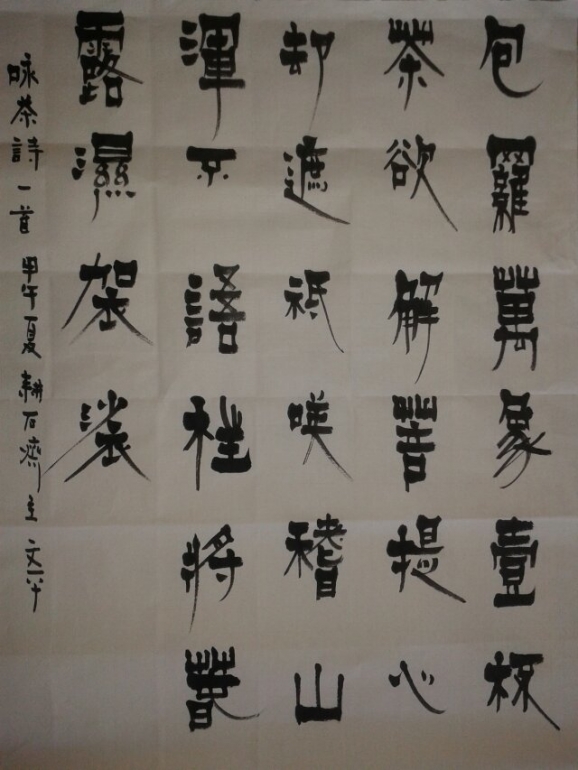 包羅萬象壹杯
茶欲解菩提心
却遮祇嘆稽山
渾不語枉將春
露濕袈裟
咏茶詩一首 甲午夏 耕石齋主 文